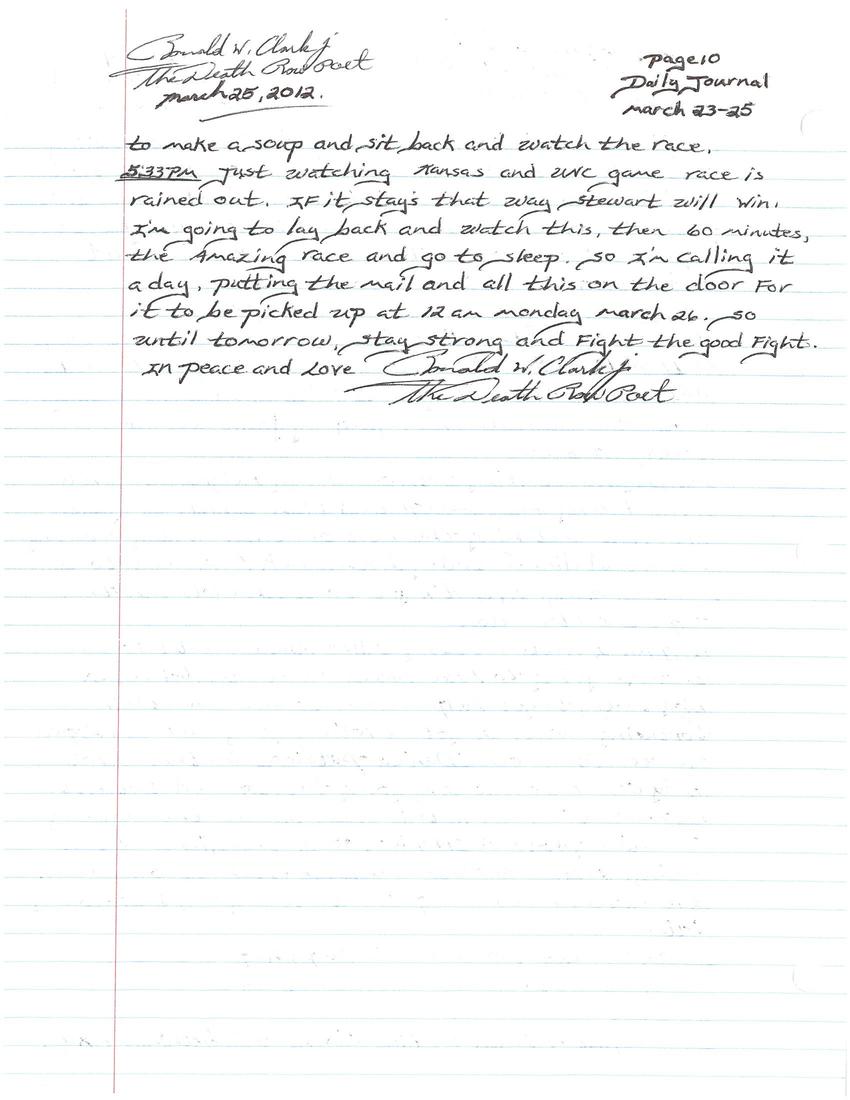 Ronald W. Clark jr
The Death Row Poet
march 25, 2012.
page 10
Daily Journal
march 23-25
to make a soup and sit back and watch the race.
5:33PM Just watching Kansas and UNC game race is
rained out. IF it stays that way Stewart will win.
I'm going to lay back and watch this, then 60 minutes,
the Amazing race and go to sleep. so I'm calling it
a day, putting the mail and all this on the door For
it to be picked up at 12 am monday march 26. so
until tomorrow, stay strong and Fight the good Fight.
In peace and Love Ronald W. Clark jr
The Death Row Poet